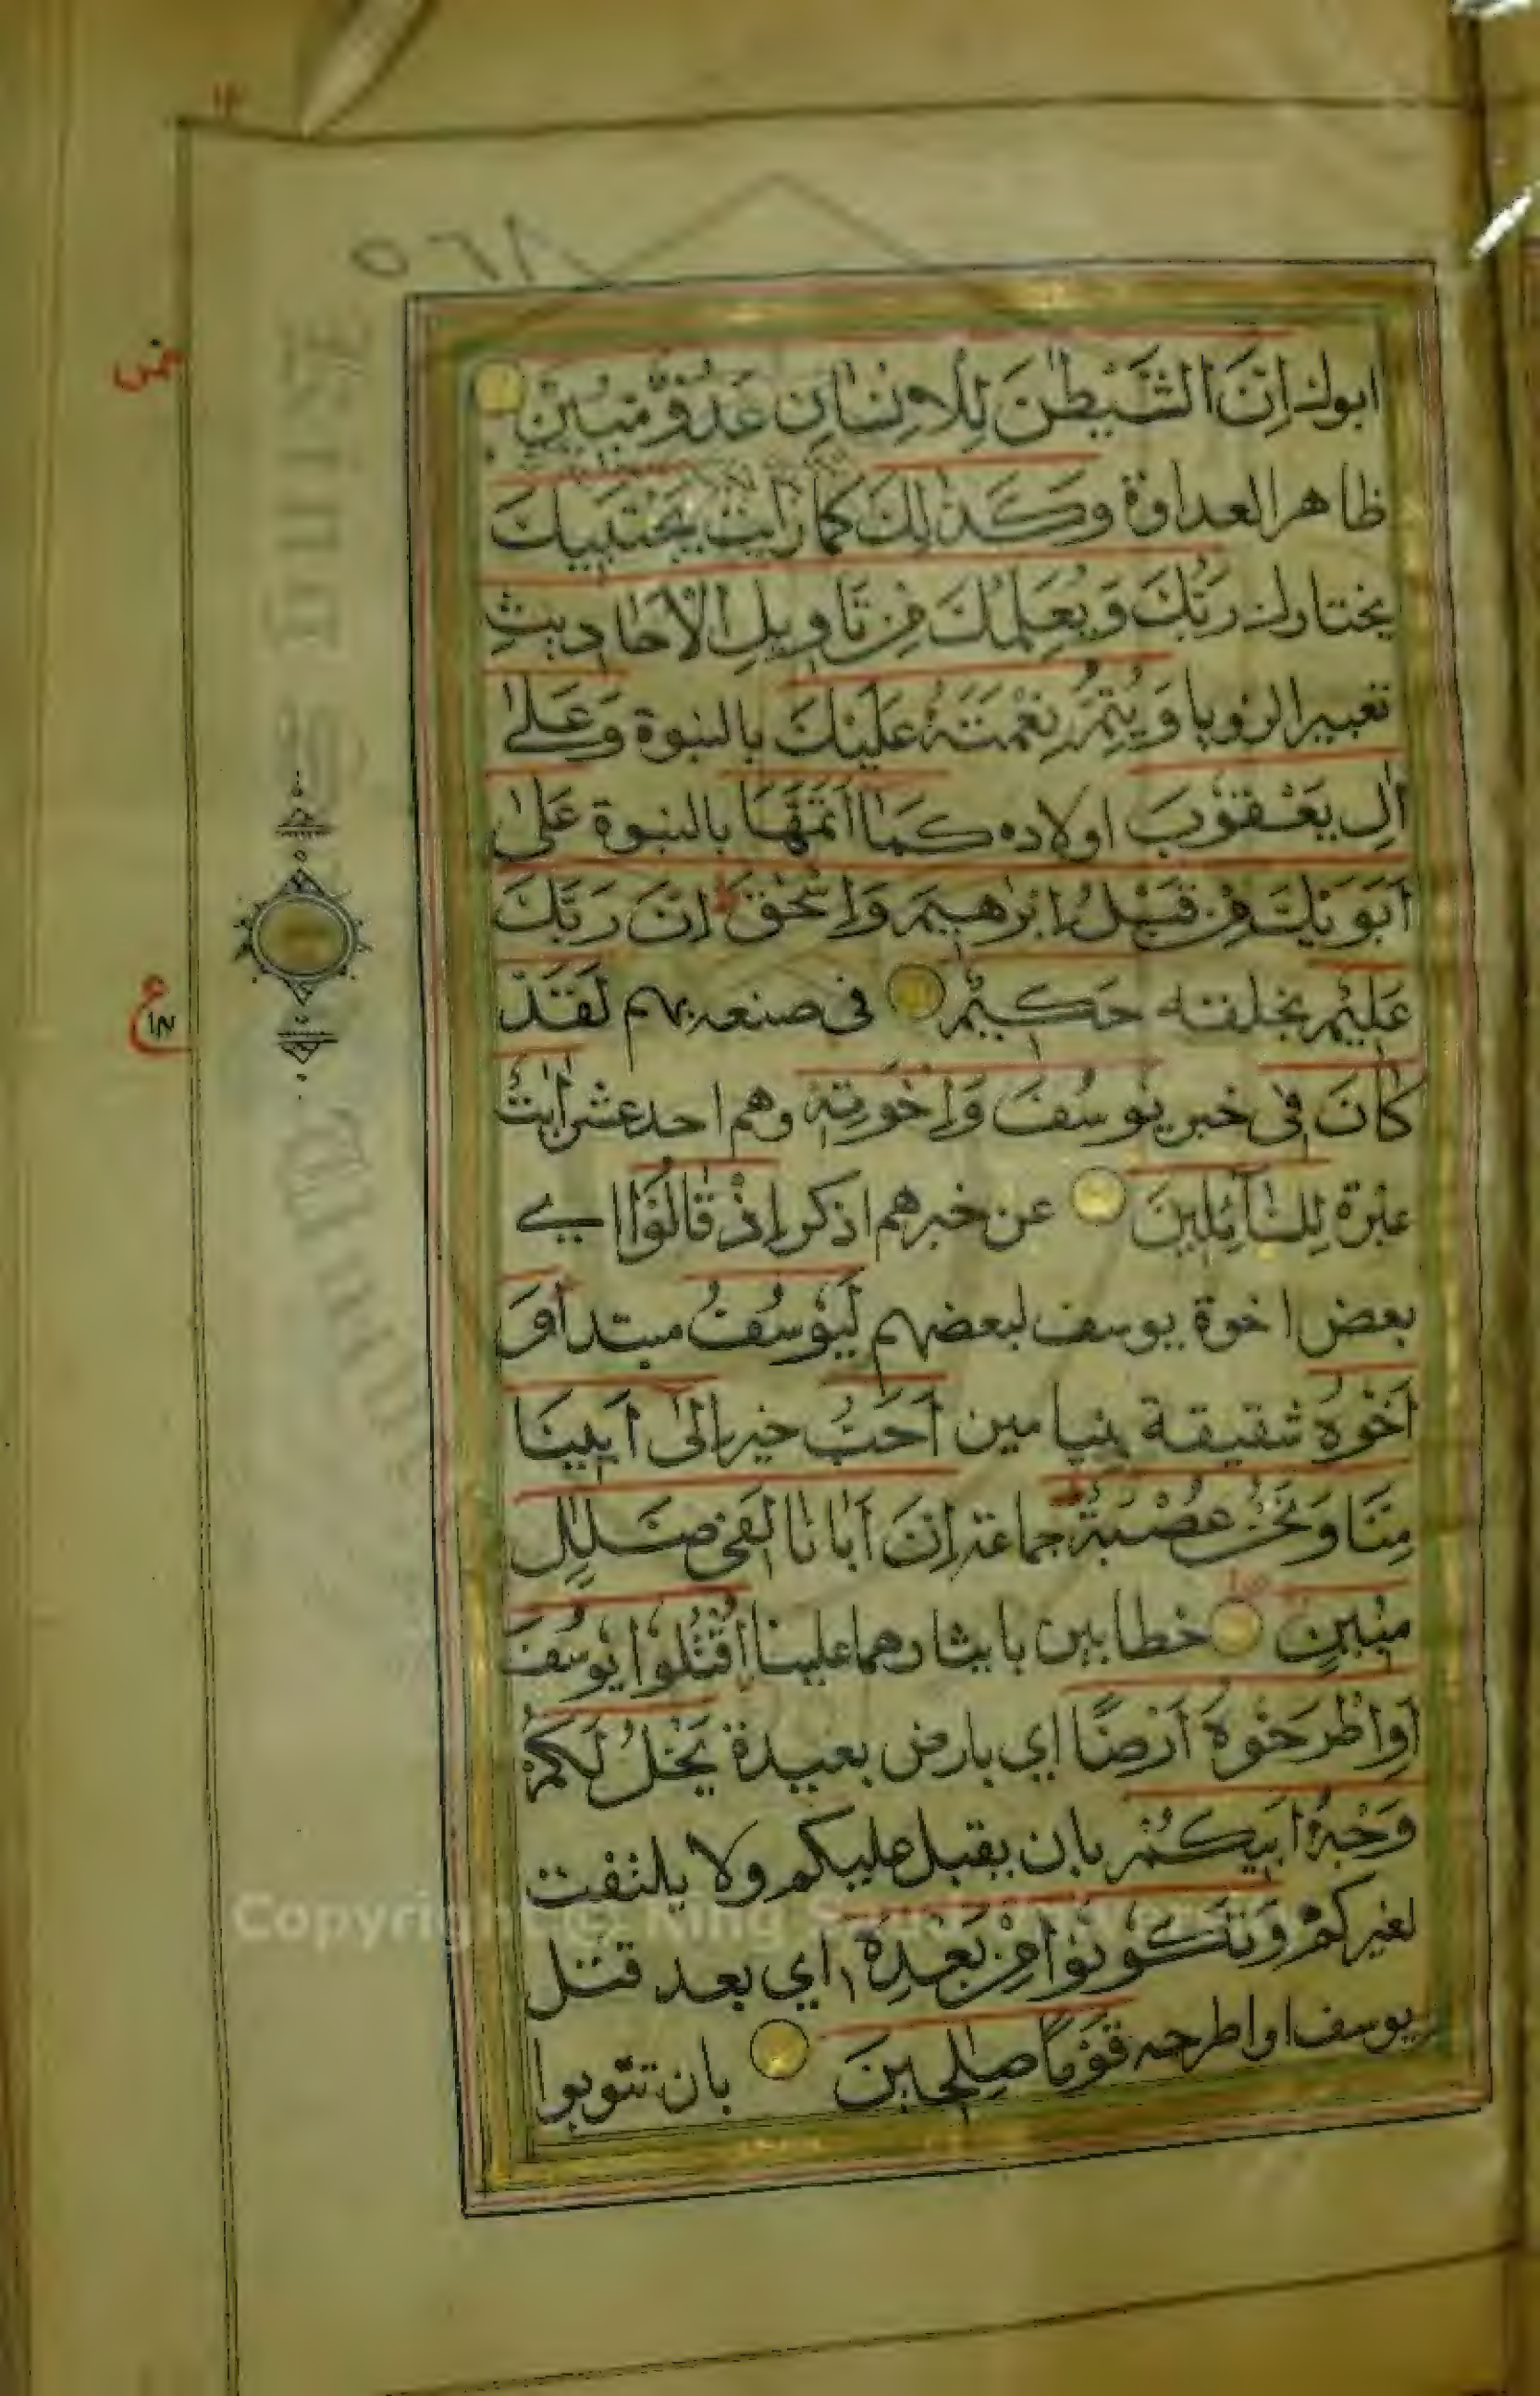 ٥٦٨
خمس
ابوك اِنَّ الشَّيْطٰنَ لِلْاِنْسَانِ عَدُوٌّ مُّبِيْنٌ
ظاهر العداوة وَكَذٰلِكَ كما رايت يَجْتَبِيْكَ
يختارك رَبُّكَ وَيُعَلِّمُكَ مِنْ تَاْوِيْلِ الْاَحَادِيْثِ
تعبير الرؤيا وَيُتِمُّ نِعْمَتَهٗ عَلَيْكَ بالنبوة وَعَلٰى
اٰلِ يَعْقُوْبَ اولاده كَمَا اَتَمَّهَا بالنبوة عَلٰى
اَبَوَيْكَ مِنْ قَبْلُ اِبْرٰهِيْمَ وَاِسْحٰقَ ط اِنَّ رَبَّكَ
عَلِيْمٌ بخلقته حَكِيْمٌ فى صنعه بهم لَقَدْ
كَانَ فِى خبر يُوْسُفَ وَاِخْوَتِهٖ وهم احد عشر اٰيٰتٌ
عبرة لِلسَّآئِلِيْنَ عن خبرهم اذكر اِذْ قَالُوْا اے
بعض اخوة يوسف لبعضهم لَيُوْسُفُ مبتدأ وَ
اَخُوْهُ شقيقة بنيامين اَحَبُّ خبر اِلٰى اَبِيْنَا
مِنَّا وَنَحْنُ عُصْبَةٌ ط جماعة اِنَّ اَبَانَا لَفِيْ ضَلٰلٍ
مُّبِيْنٍ خطا بين بايثارهما علينا اقْتُلُوْا يُوْسُفَ
اَوِاطْرَحُوْهُ اَرْضًا اي بارض بعيدة يَخْلُ لَكُمْ
وَجْهُ اَبِيْكُمْ بان يقبل عليكم ولا يلتفت
لغيركم وَتَكُوْنُوْا مِنْ بَعْدِهٖ اي بعد قتل
يوسف او اطرحه قَوْمًا صٰلِحِيْنَ بان تتوبوا
Copyright © King Saud University